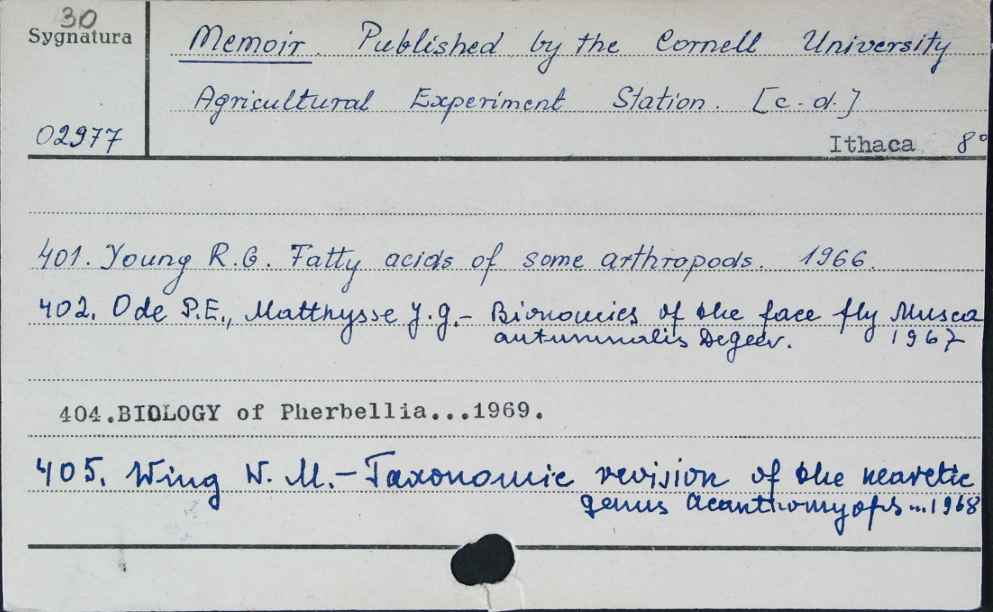 30
Sygnatura
02977
Memoir. Published by the Cornell University
Agricultural Experiment Station. [c.d.]
Ithaca 8°
401. Young R.G. Fatty acids of some arthropods. 1966.
402. Ode P.E., Matthysse J.G.- Bionomics of the face fly Musca
autumnalis Degeer. 1967
404.BIOLOGY of Pherbellia...1969.
405. Wing W. M.- Taxonomic revision of the nearctic
genus Acanthomyops...1968